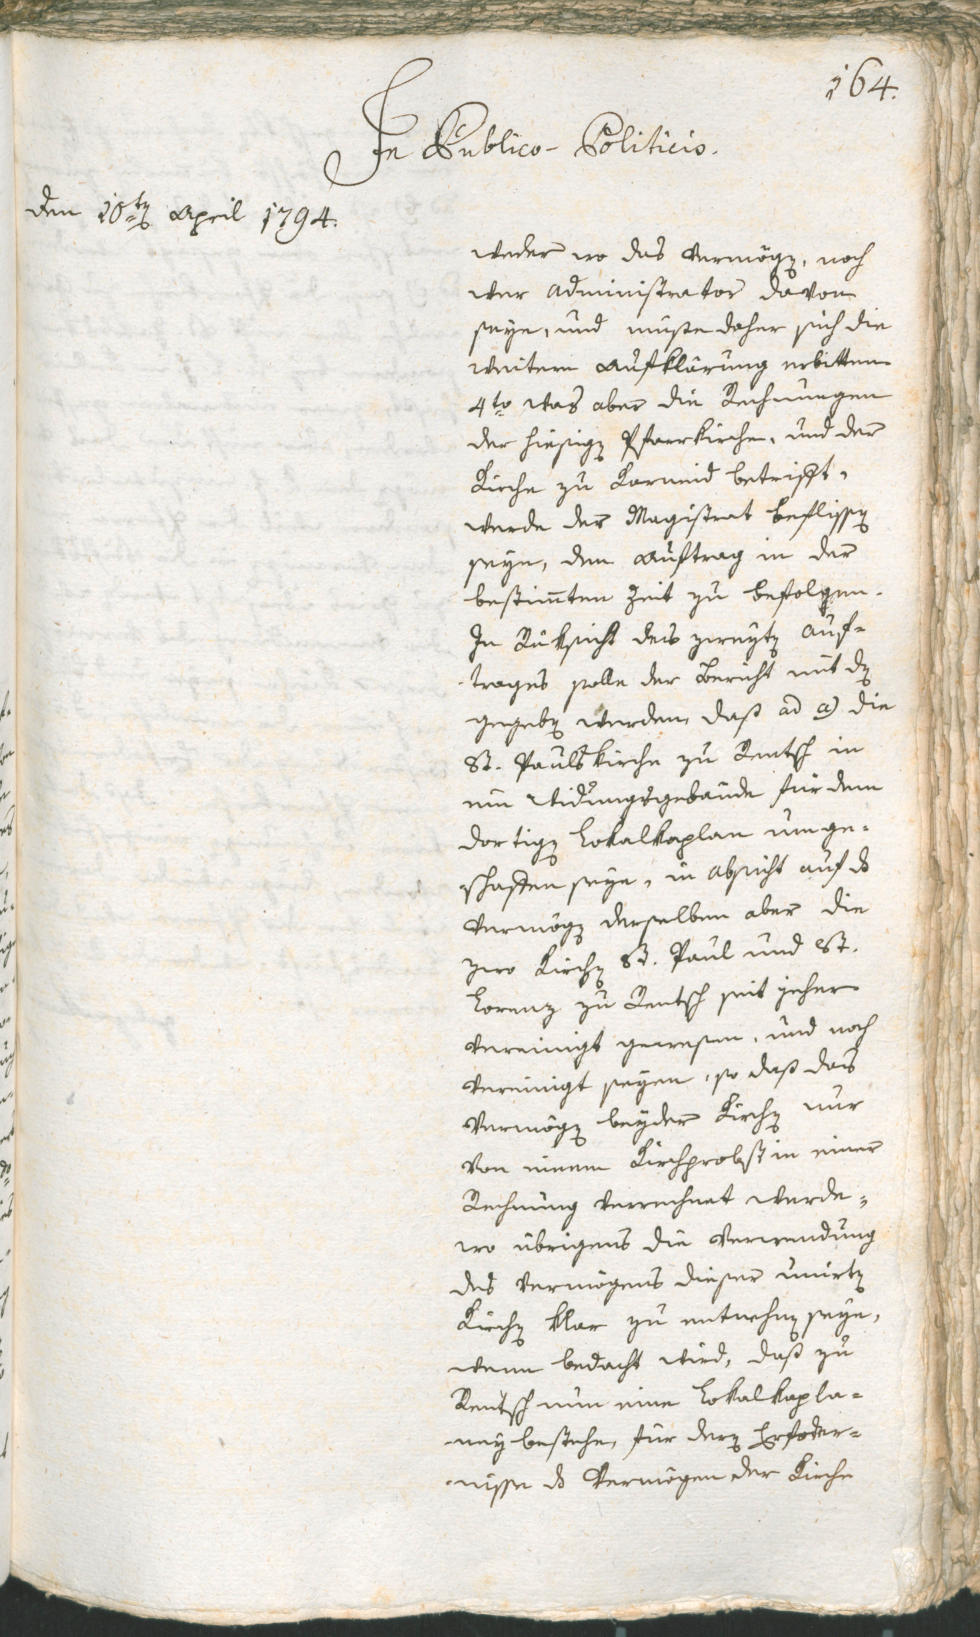 164.
In Publico-Politicis.
Den 10ten April 1794.
weder wo das Vermögen, noch
wer Administrator davon
seye, und müste daher sich die
weitere Aufklärung erbitten
4to was aber die Rechnungen
der hiesigen Pfarrkirche, und der
Kirche zu Karneid betrifft,
werde der Magistrat beflissen
seyn, dem Auftrag in der
bestim̅ten Zeit zu befolgen.
In Rüksicht des zweyten Auf-
trages solle der Bericht mit dem
gegeben werden, daß ad a) die
St. Pauls kirche zu Rentsch in
ein Widumsgebäude für dem
dortigen Lokalkaplan umge-
schaffen seye, in Absicht auf ds
Vermögen derselben aber die
zwo Kirchen St. Paul und St.
Lorenz zu Rentsch seit jeher
vereinigt gewesen, und noch
vereinigt seyen, so daß das
Vermögen beyder Kirchen nur
von einem Kirchprobst in einer
Rechnung verrechnet werde,
wo übrigens die Verwendung
des Vermögens dieser unirten
Kirchen klar zu entnehmen seye,
wenn bedacht wird, daß zu
Rentsch nun eine Lokalkapla-
ney bestehe, für deren Erforder-
nisse ds Vermögen der Kirche